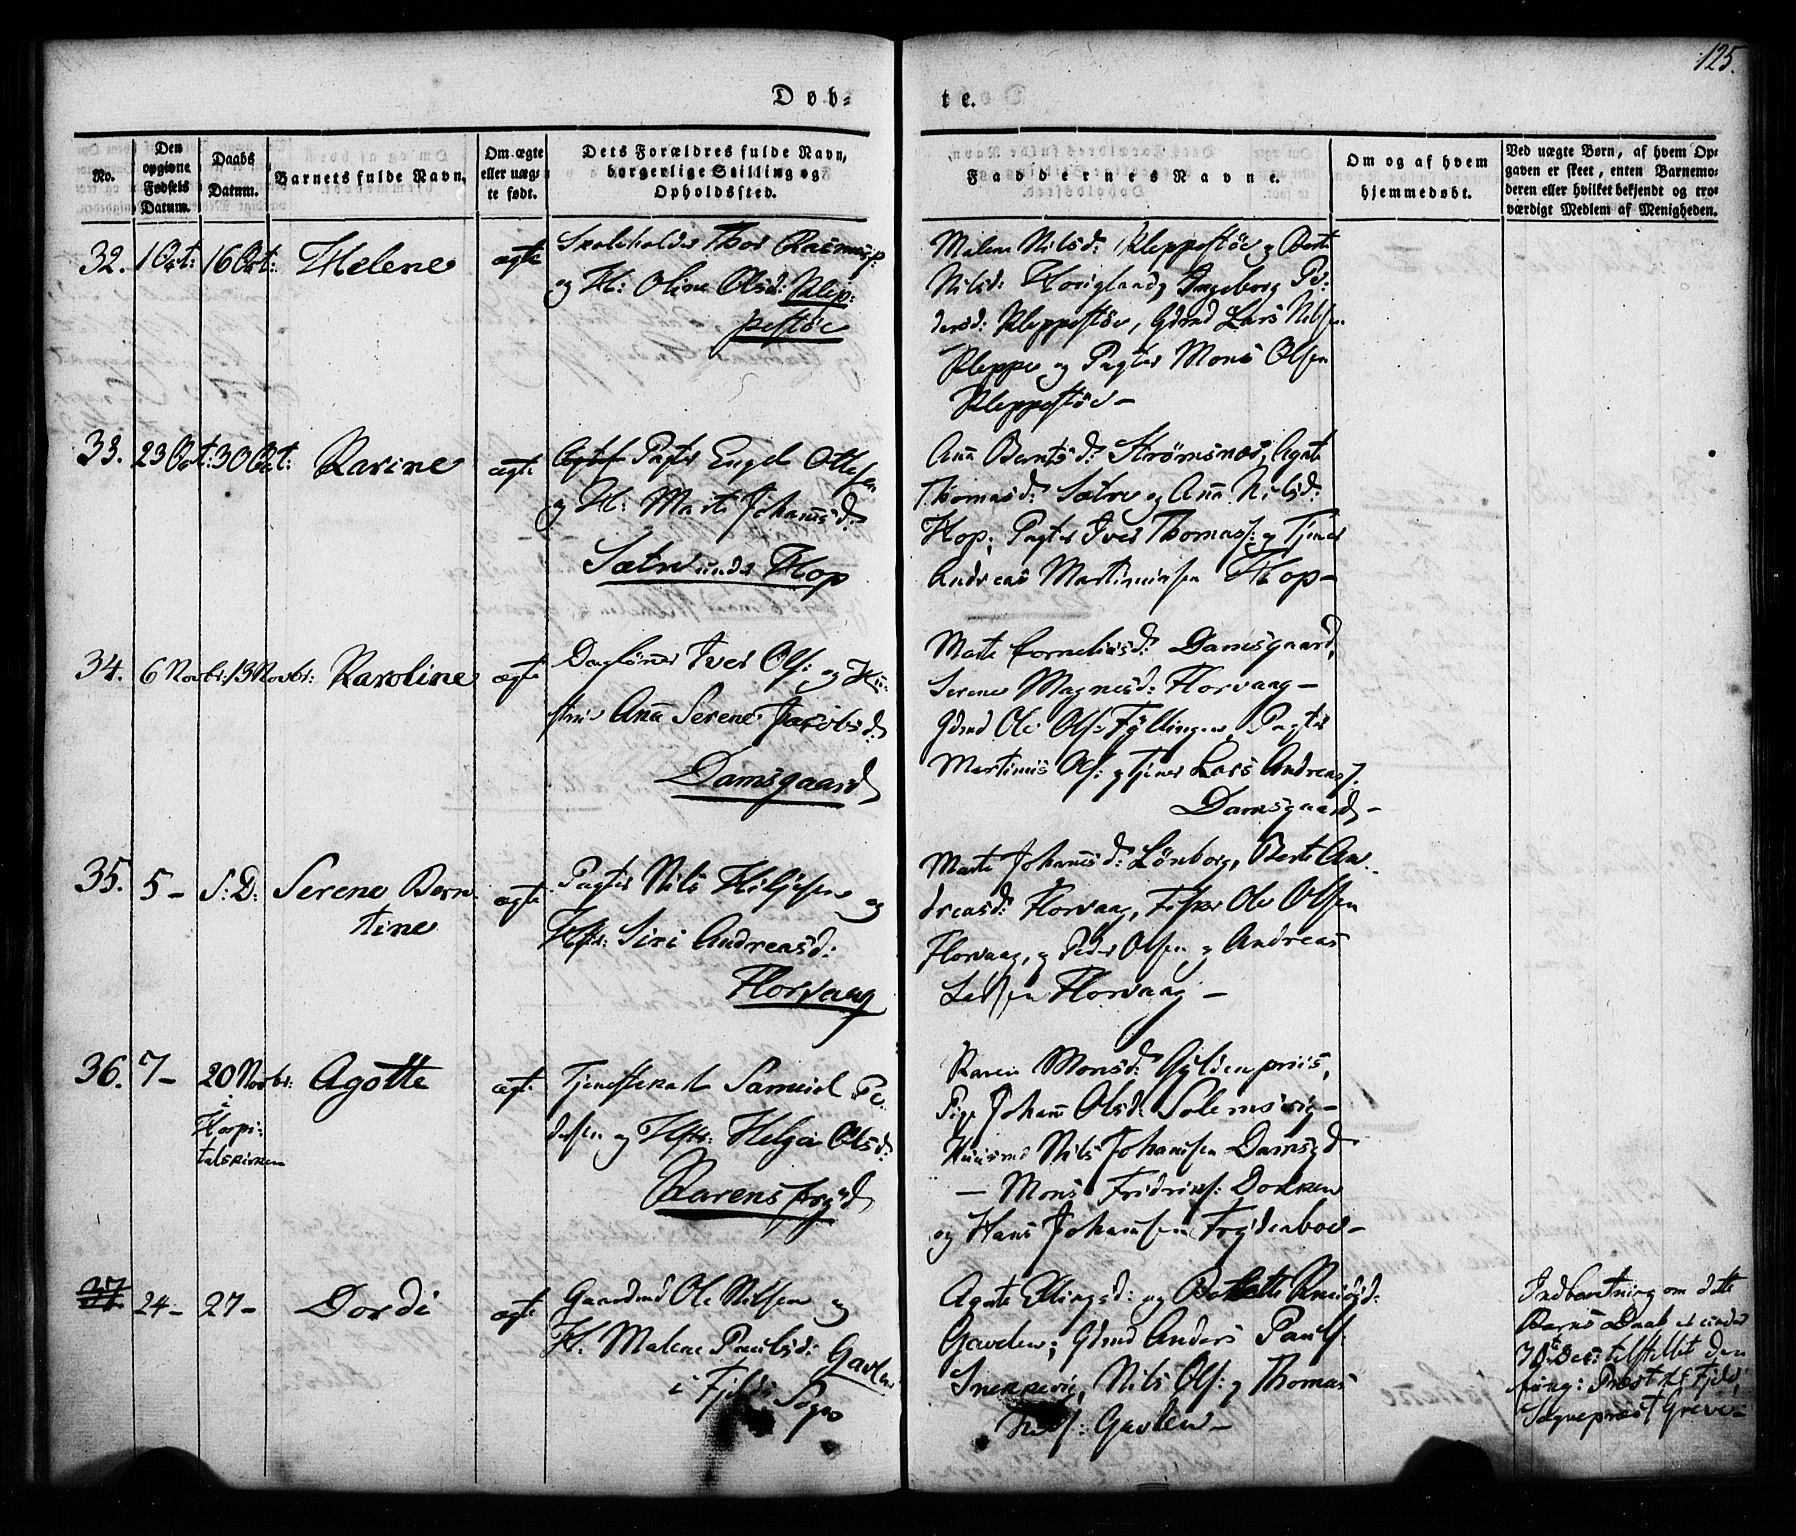 125.
Døb-
te.
No.
Den
opgivne
Fødsels
Datum.
Daabs
Datum.
Barnets fulde Navn.
Om ægte
eller uæg-
te født.
Dets Forældres fulde Navn,
borgerlige Stilling og
Opholdssted.
Faddernes Navne.
Om og af hvem
hjemmedøbt.
Ved uægte Børn, af hvem Op-
gaven er skeet, enten Barnemo-
deren eller hvilket bekjendt og tro-
værdigt Medlem af Menigheden.
32. 1 Oct: 16 Oct: Helene ægte
Skoleholder Thor Rasmuss:
og H: Oline Olsd: Klep-
pestöe
Malene Nilsd: Kleppestöe og Berte
Nilsd: Haugland, Ingeborg Pe-
dersd: Kleppestöe, Gdmd Lars Nilsen
Kleppe og Pagter Mons Olsen
Kleppestöe -
33. 23 Oct: 30 Oct: Karine ægte
Pagter Engel Ottesen
og H: Marte Johansd:
Sætre under Hop
Ana Berntsd: Strömsnæs, Agate
Thomasd: Sætre og Ana Nilsd:
Hop, Pagter Iver Thomass: og Tjener
Andreas Martinusen Hop -
34. 6 Novbr: 13 Novbr: Karoline ægte
Daglöner Iver Ols: og Hu-
strue Ana Serene Jacobsd:
Damsgaard
Marte Corneliusd: Damsgaard,
Serene Magnesd: Florvaag -
Gdmd Ole Ols: Fyllingen, Pagter
Martinus Ols: og Tjener Lars Andreass:
Damsgaard -
35. 5 - S: D: Serene Bern-
tine ægte
Pagter Nils Kiljesen og
Hstr: Siri Andreasd:
Florvaag
Marte Johansd: Lönborg, Berte An-
dreasd: Florvaag, Fisker Ole Olsen
Florvaag, og Peder Olsen og Andreas
Larsen Florvaag -
36. 7 - 20 Novbr:
i
Hospi-
talskirken
Agotte ægt:
Tjenestekarl Samuel Pe-
dersen og Hstr: Helga Olsd:
Karensfryd
Karen Monsd: Gyldenpriis,
Pige Johane Olsd: Solemsvig -
Huusmd Nils Johansen Damsgd
- Mons Fridriks: Dokken
og Hans Johansen Frydenboe -
37. 24 - 27 - Dordi ægte
Gaardmd Ole Nilsen og
H. Malene Paulsd: Gavlen
i Fjelds Sogn
Agate Ellingsd: og Botlette Knudsd:
Gavlen, Gdmd Anders Pauls:
Snekkevig, Nils Ols: og Thomas
Nils: Gavlen -
Indberetning om dette
Barns Daab er under
30 Dec: tilstillet den
fung: Præst til Fjeld,
Sognepræst Greve -